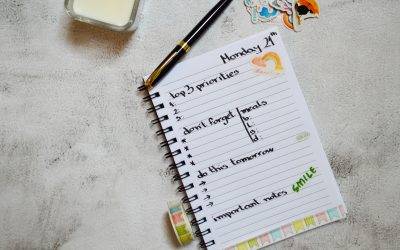 Monday 29th
top 3 priorities
1.
2.
3.
don't forget meals
* b.
* L.
* s.
* d.
do this tomorrow
→
→
→
→
important notes SMILE